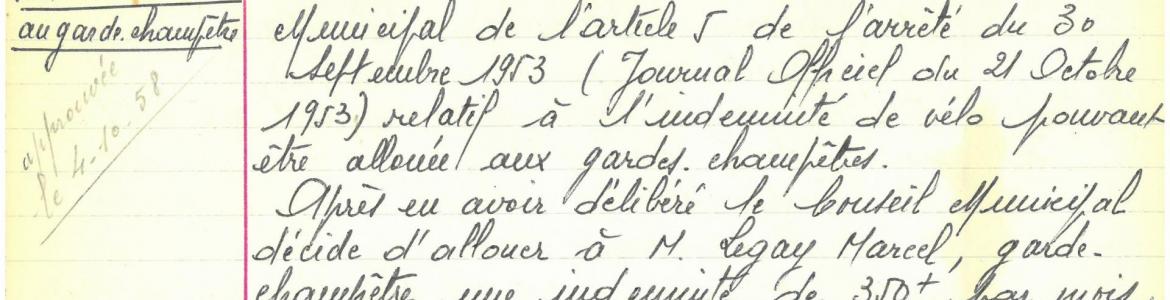 au garde-champêtre
approuvée
le 4-10-58
Municipal de l'article 5 de l'arrêté du 30
Septembre 1953 (Journal Officiel du 21 Octobre
1953) relatif à l'indemnité de vélo pouvant
être allouée aux gardes-champêtres.
Après en avoir délibéré le Conseil Municipal
décide d'allouer à M. Legay Marcel, garde-
champêtre une indemnité de 350f par mois